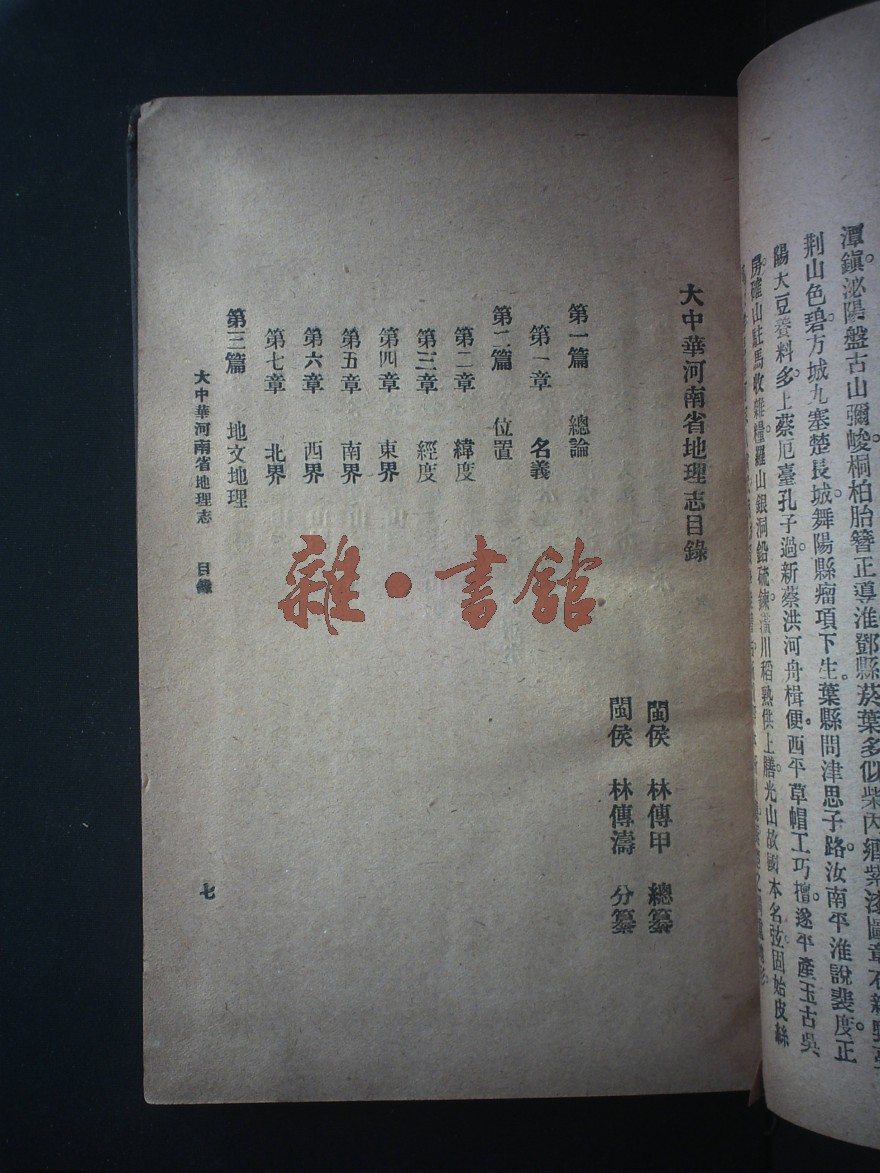 潭鎭泌陽盤古山彌峻桐柏胎簪正導淮鄧縣菸葉多似柴內
荆山色碧方城九塞楚長城舞陽縣瘤項下生葉縣問津思子路汝南平淮說裴度正
陽大豆養料多上蔡厄臺孔子過新蔡洪河舟楫便西平草帽工巧擅遂平產玉古吳
房確山駐馬收雜糧羅山銀洞鉛硫鍊潢川稻熟供上膳光山故國本名弦固始皮絲
大中華河南省地理志目錄
閩侯 林傳甲 總纂
閩侯 林傳濤 分纂
第一篇 總論
第一章 名義
第二篇 位置
第二章 緯度
第三章 經度
第四章 東界
第五章 南界
第六章 西界
第七章 北界
第三篇 地文地理
大中華河南省地理志 目錄
七
雜·書館